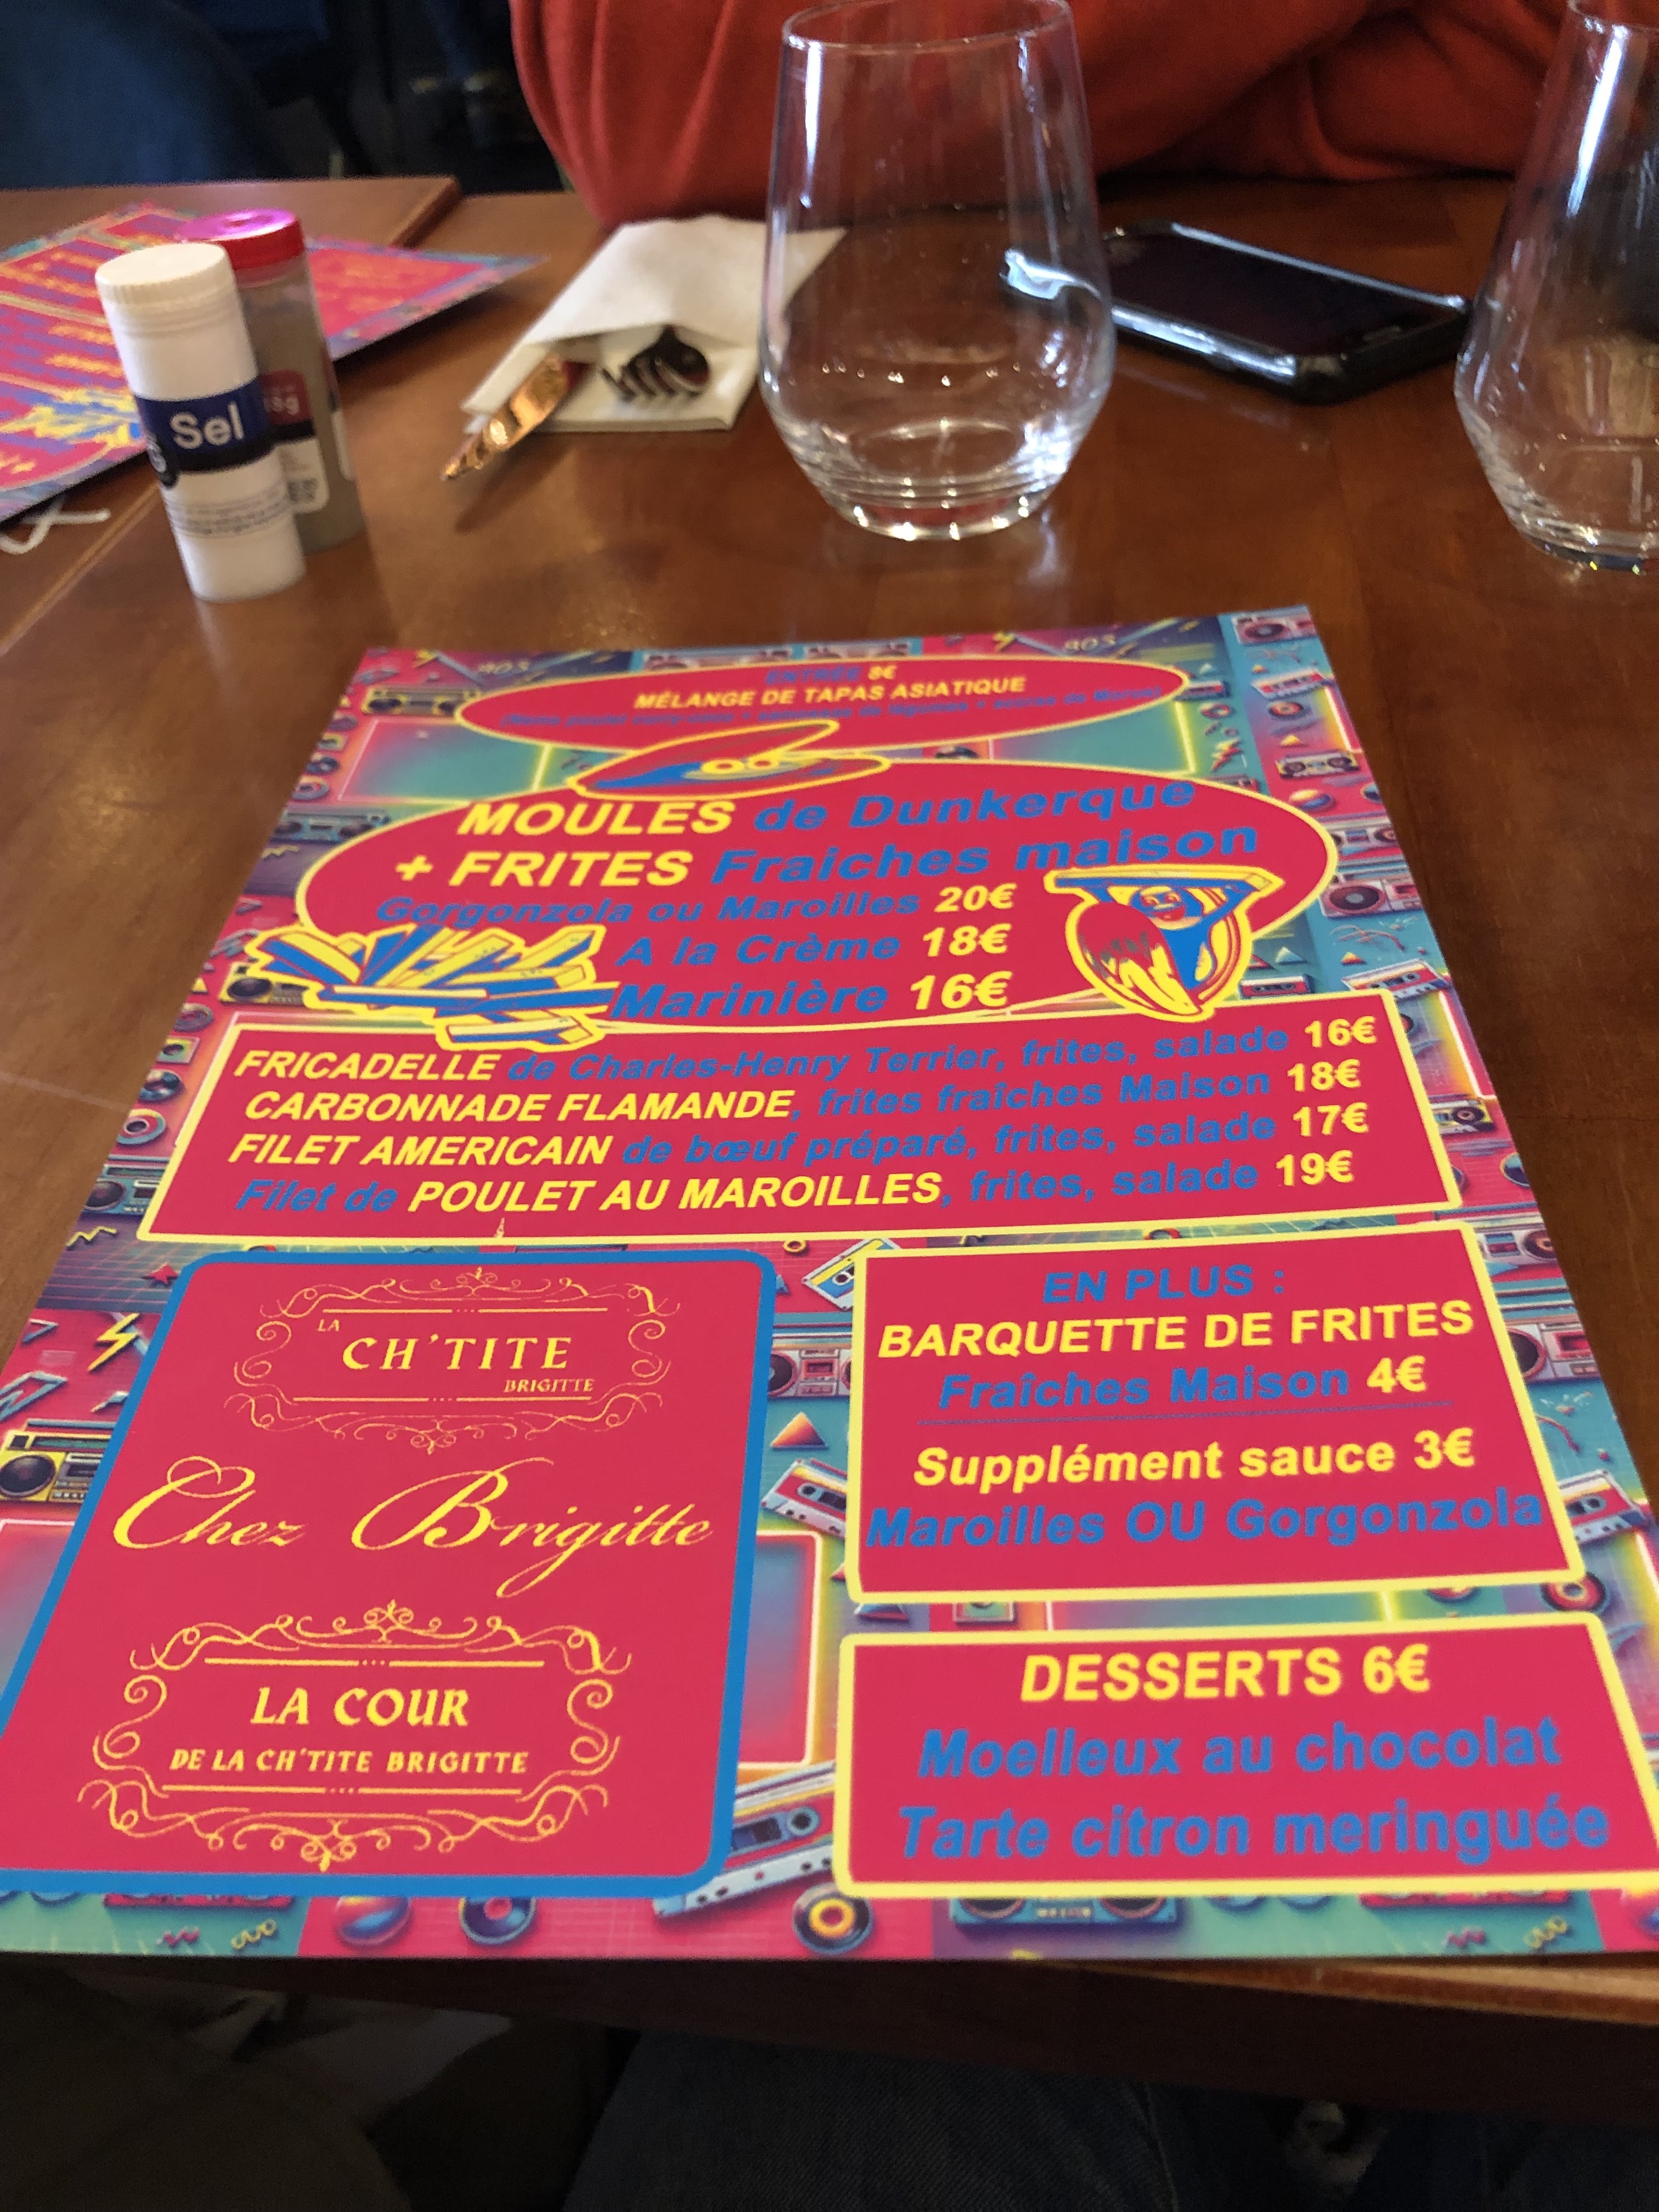 Sel
ENTRÉE 8€
MÉLANGE DE TAPAS ASIATIQUE
MOULES de Dunkerque
+ FRITES Fraiches maison
Gorgonzola ou Maroilles 20€
A la Crème 18€
Marinière 16€
FRICADELLE de Charles-Henry Terrier, frites, salade 16€
CARBONNADE FLAMANDE, frites fraîches Maison 18€
FILET AMERICAIN de bœuf préparé, frites, salade 17€
Filet de POULET AU MAROILLES, frites, salade 19€
LA
CH'TITE
BRIGITTE
Chez Brigitte
LA COUR
DE LA CH'TITE BRIGITTE
EN PLUS :
BARQUETTE DE FRITES
Fraîches Maison 4€
Supplément sauce 3€
Maroilles OU Gorgonzola
DESSERTS 6€
Moelleux au chocolat
Tarte citron meringuée